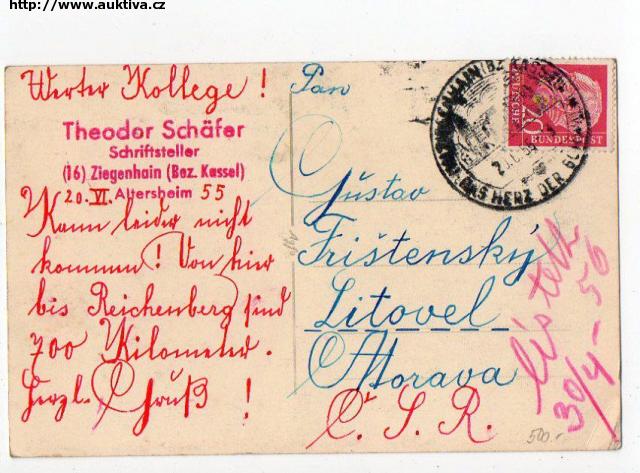 http://www.auktiva.cz
Werter Kollege !
Theodor Schäfer
Schriftsteller
(16) Ziegenhain (Bez. Kassel)
Altersheim
20. VI. 55
Kann leider nicht
kommen ! Von hier
bis Reichenberg sind
700 Kilometer.
Herzl. Gruß !
Pan
Gustav
Frištenský
Litovel
Morava
Č. S. R.
ZIEGENHAIN (BZ. KASSEL)
DAS HERZ DER
20
DEUTSCHE
BUNDESPOST
30/4-56
500.-